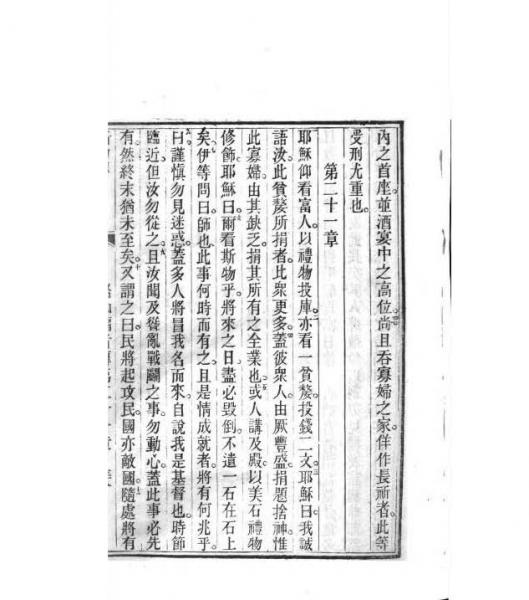 內之首座並酒宴中之高位尚且吞寡婦之家佯作長祈者此等
受刑尤重也
第二十一章
耶穌仰看富人以禮物投庫亦看一貧嫠投錢二文耶穌曰我誠
語汝此貧嫠所捐者比衆更多蓋彼衆人由厥豐盛捐題捨神惟
此寡婦由其缺乏捐其所有之全業也或人講及殿以美石禮物
修飾耶穌曰爾看斯物乎將來之日盡必毀倒不遺一石在石上
矣伊等問曰師也此事何時而有之且是情成就者將有何兆乎
曰謹慎勿見迷惑蓋多人將冒我名而來自說我是基督也時節
臨近但汝勿從之且汝聞及從亂戰鬬之事勿動心蓋此事必先
有然終末猶未至矣又謂之曰民將起攻民國亦敵國隨處將有